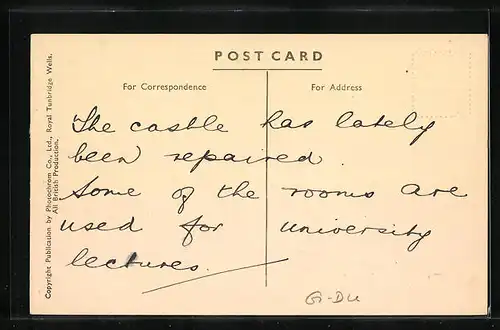 POST CARD
For Correspondence
For Address
The castle has lately
been repaired.
Some of the rooms are
used for university
lectures.
G-Du
Copyright Publication by Photochrom Co., Ltd., Royal Tunbridge Wells.
All British Production.